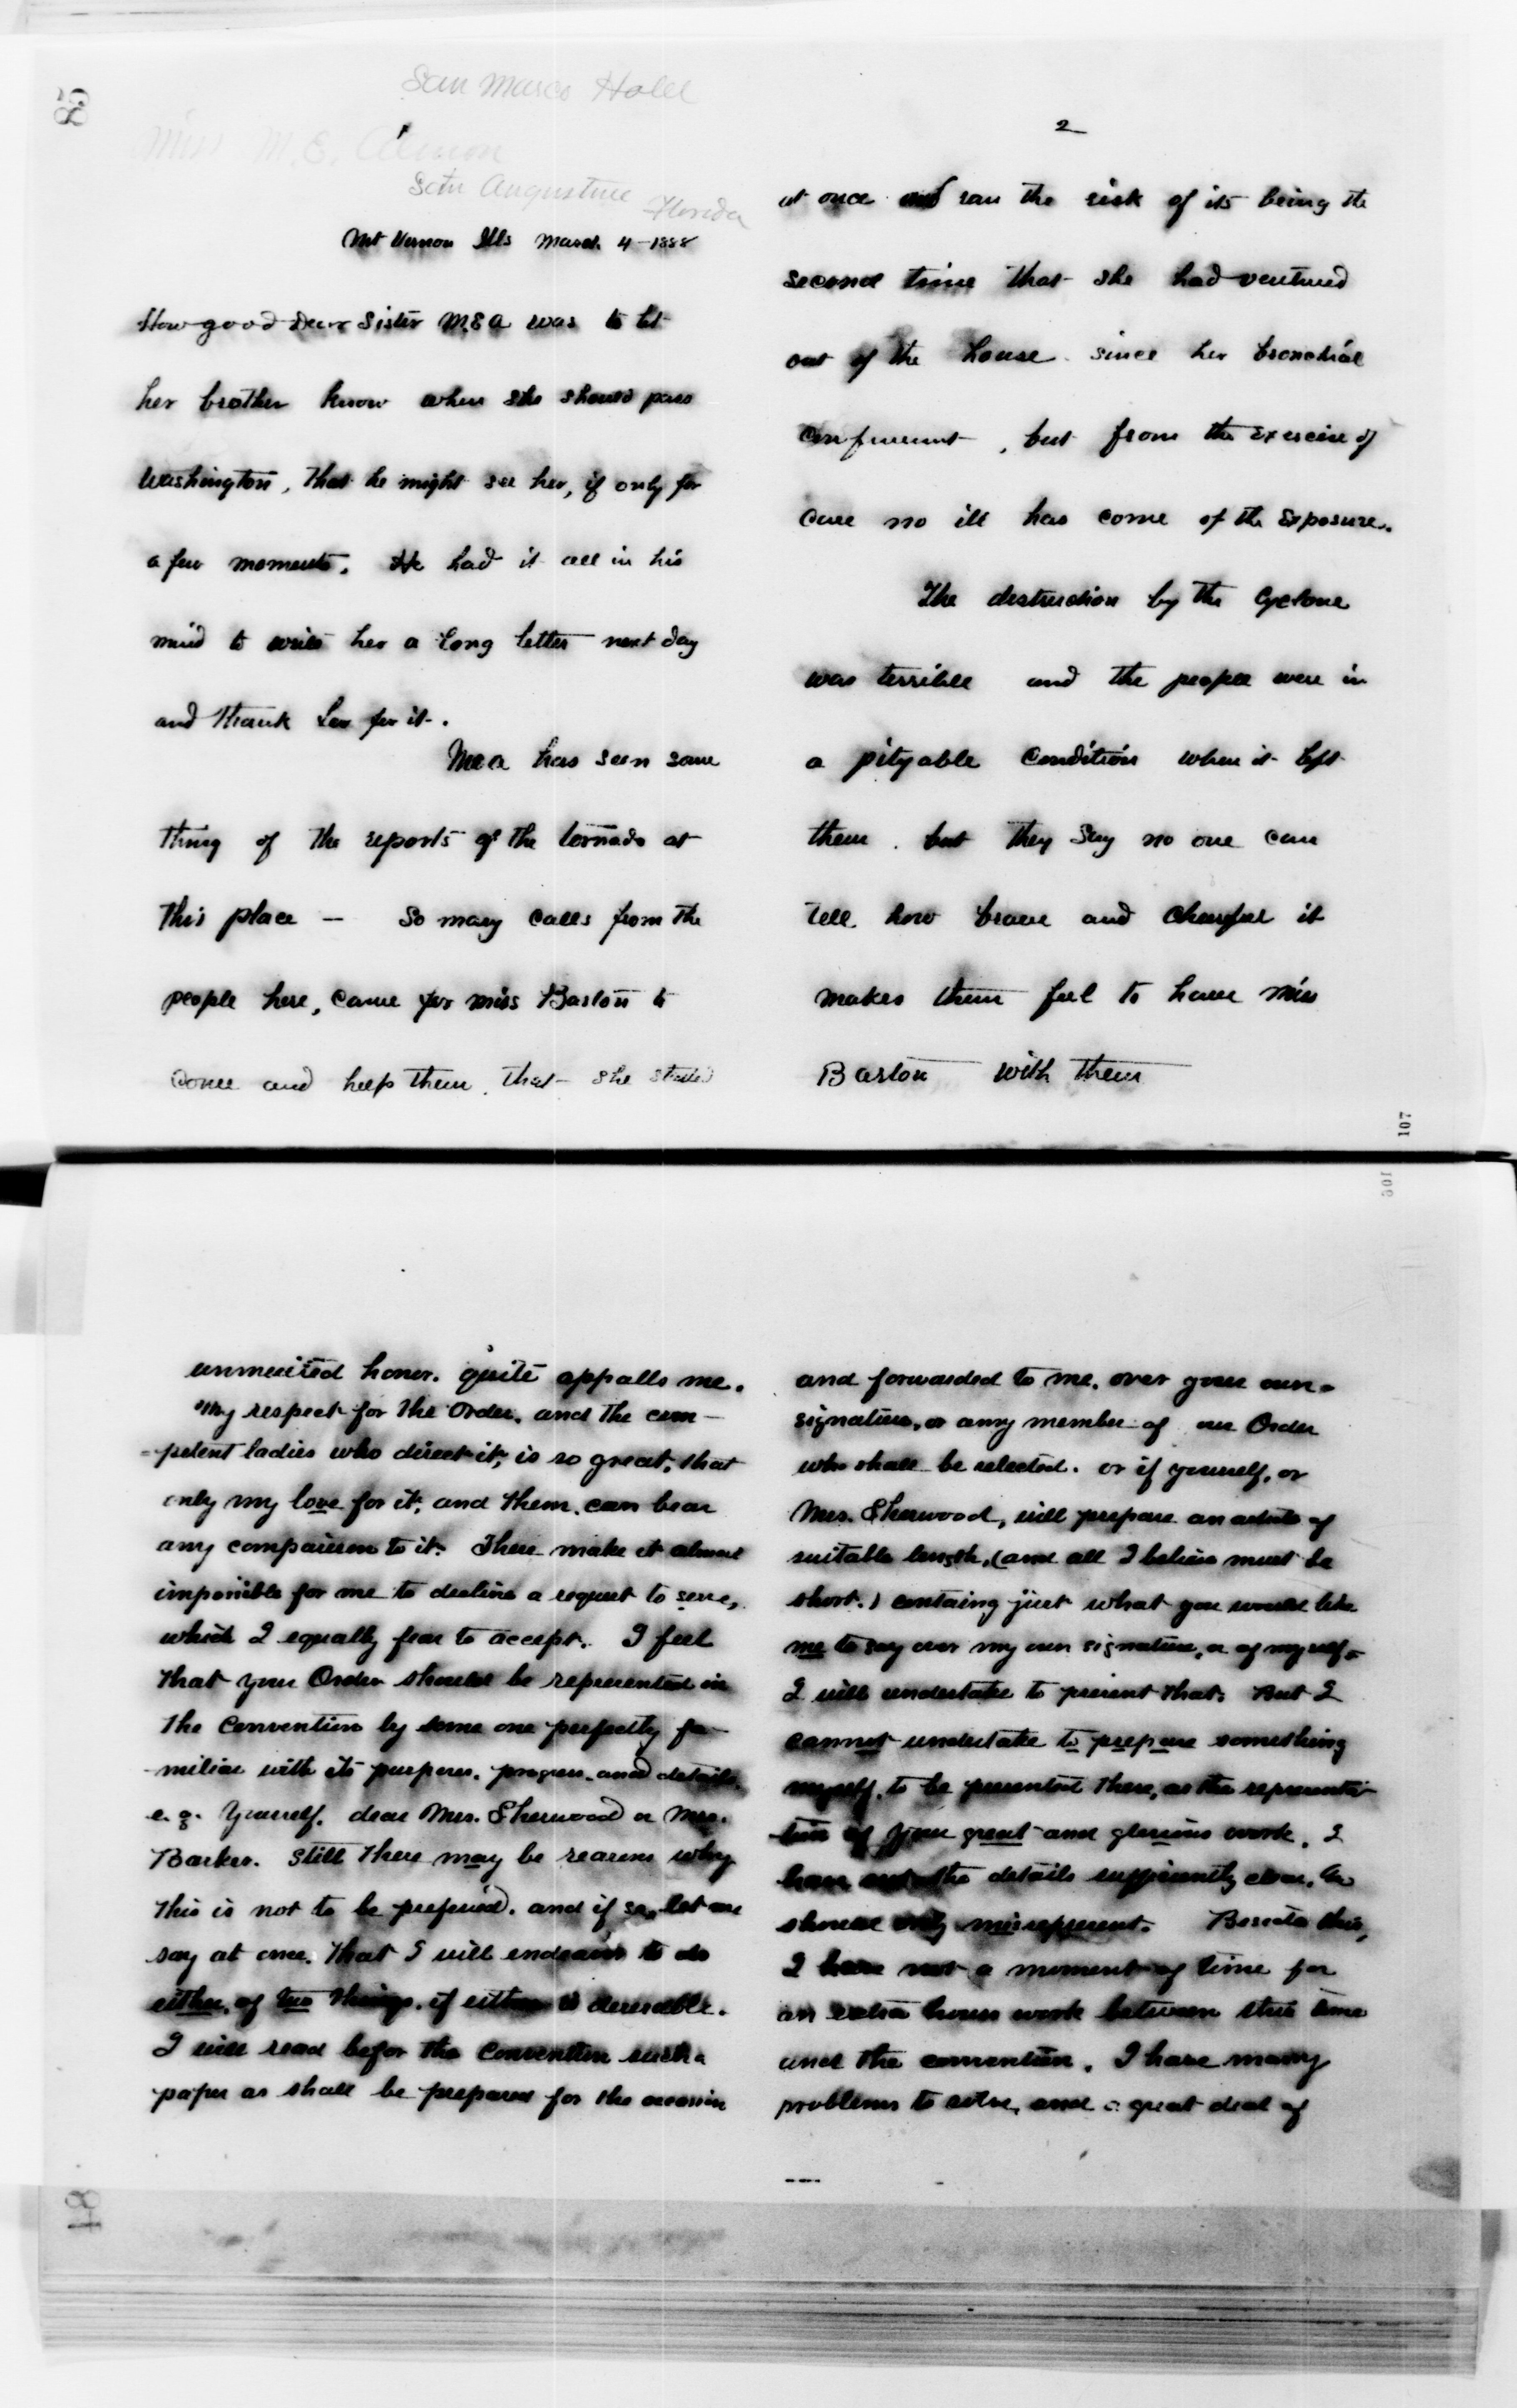 San Marco Hotel
Miss M. E. Almon
Saint Augustine
Florida
Mt Vernon Ills March 4 - 1888
How good Dear Sister M.E.A was to let
her brother know when she should pass
Washington, that he might see her, if only for
a few moments. He had it all in his
mind to write her a long letter next day
and thank her for it.
Mea has seen some
thing of the reports of the tornado at
this place — So many calls from the
people here, came for Miss Barton to
come and help them, that she started
2
at once and ran the risk of its being the
second time that she had ventured
out of the house since her bronchial
confinement, but from the exercise of
care no ill has come of the exposure.
The destruction by the Cyclone
was terrible and the people were in
a pityable condition when it left
them. but they say no one can
tell how brave and cheerful it
makes them feel to have Miss
Barton with them
107
106
unmerited honor. quite appalls me.
My respect for the Order, and the com-
-petent ladies who direct it, is so great, that
only my love for it, and them, can bear
any comparison to it. These make it almost
impossible for me to decline a request to serve,
which I equally fear to accept. I feel
that your Order should be represented in
the Convention by some one perfectly fa-
-miliar with its purposes, progress, and details
e.g. Yourself, dear Mrs. Sherwood or Mrs.
Barker. Still there may be reasons why
this is not to be preferred. and if so, let me
say at once, that I will endeavor to do
either, of two things, if either is desirable.
I will read befor the Convention such a
paper as shall be prepared for the occasion
and forwarded to me, over your own
signature, or any member of our Order
who shall be selected. or if yourself, or
Mrs. Sherwood, will prepare an article of
suitable length, (and all I believe must be
short.) containg just what you would like
me to say over my own signature, or of myself,
I will undertake to present that. But I
cannot undertake to prepare something
myself, to be presented there, as the representa-
tion of your great and glorious work. I
have not the details sufficiently clear,
should only misrepresent. Besides this,
I have not a moment of time for
an extra hours work between this time
and the convention. I have many
problems to solve, and a great deal of
84